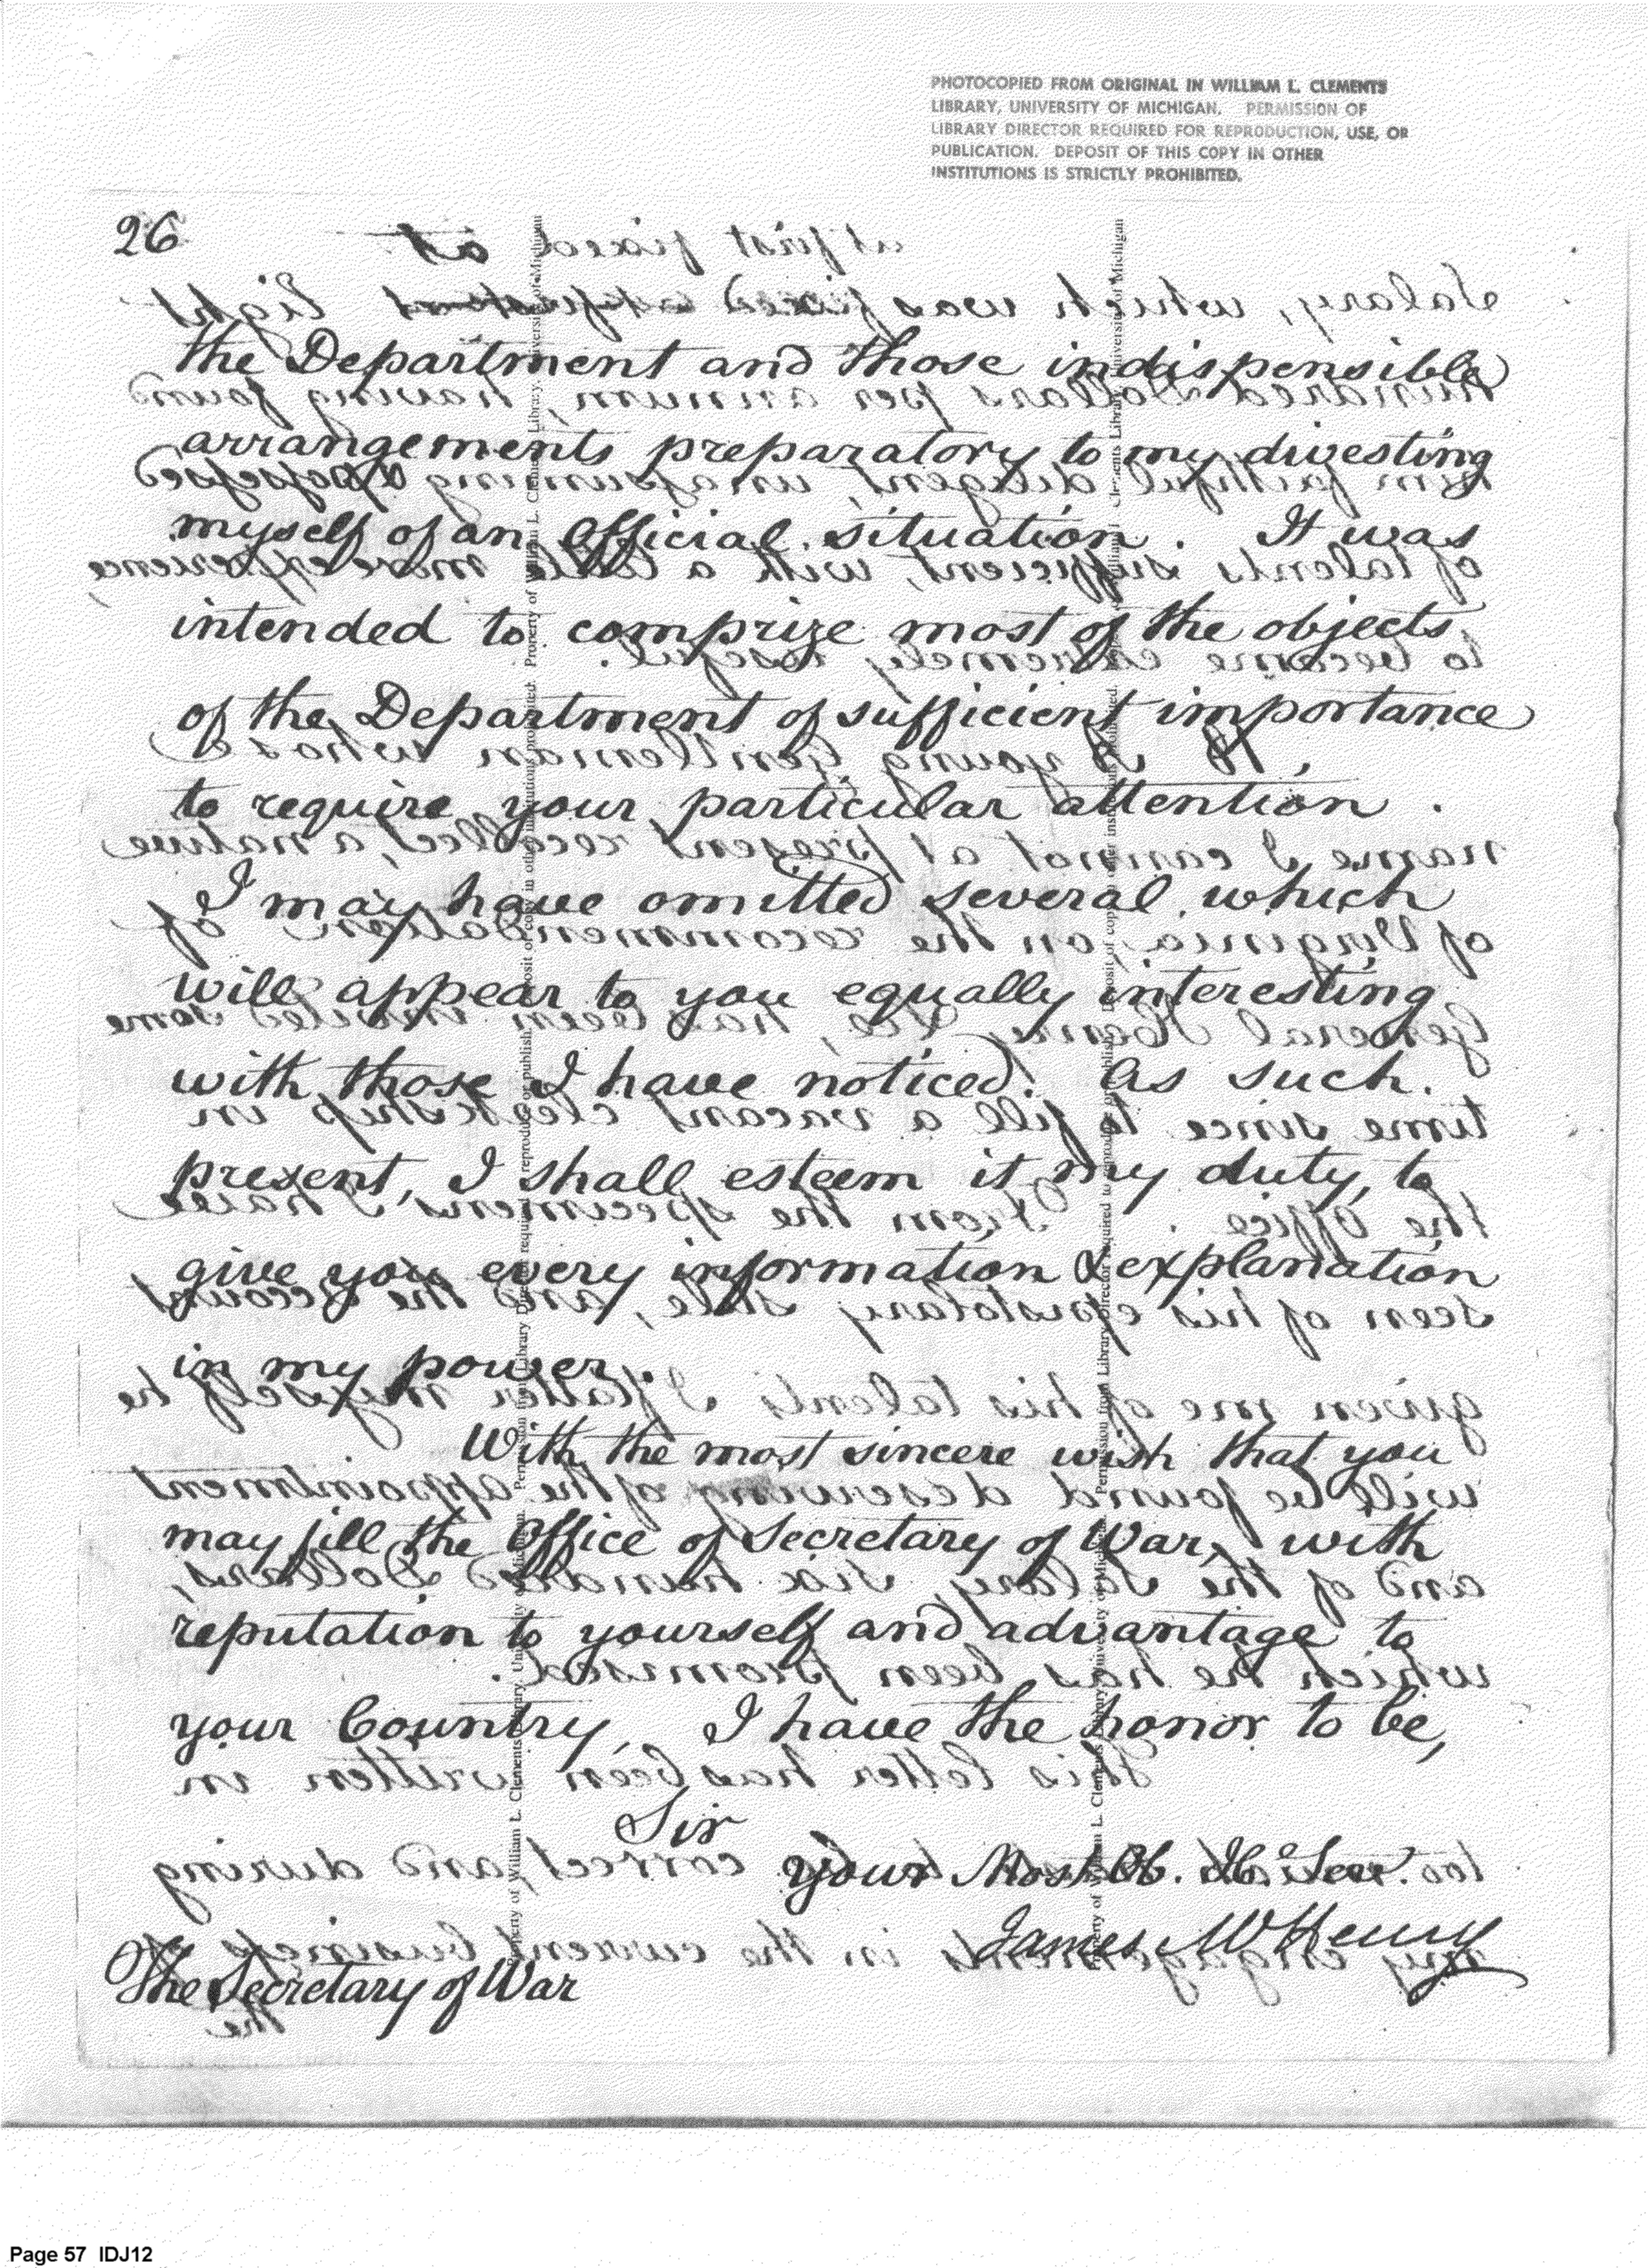 PHOTOCOPIED FROM ORIGINAL IN WILLIAM L. CLEMENTS
LIBRARY, UNIVERSITY OF MICHIGAN. PERMISSION OF
LIBRARY DIRECTOR REQUIRED FOR REPRODUCTION, USE, OR
PUBLICATION. DEPOSIT OF THIS COPY IN OTHER
INSTITUTIONS IS STRICTLY PROHIBITED.
26
the Department and those indispensible
arrangements preparatory to my divesting
myself of an Official situation. It was
intended to comprize most of the objects
of the Department of sufficient importance
to require your particular attention.
I may have omitted several which
will appear to you equally interesting
with those I have noticed. As such
present, I shall esteem it my duty, to
give you every information & explanation
in my power.
With the most sincere wish that you
may fill the Office of Secretary of War, with
reputation to yourself and advantage to
your Country, I have the honor to be,
Sir
your Most Ob. H. Ser.
James McHenry
The Secretary of War
Page 57 IDJ12